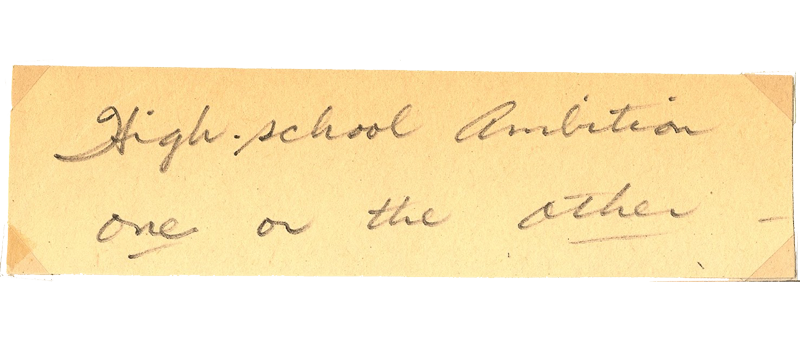 High-school Ambition
one or the other –